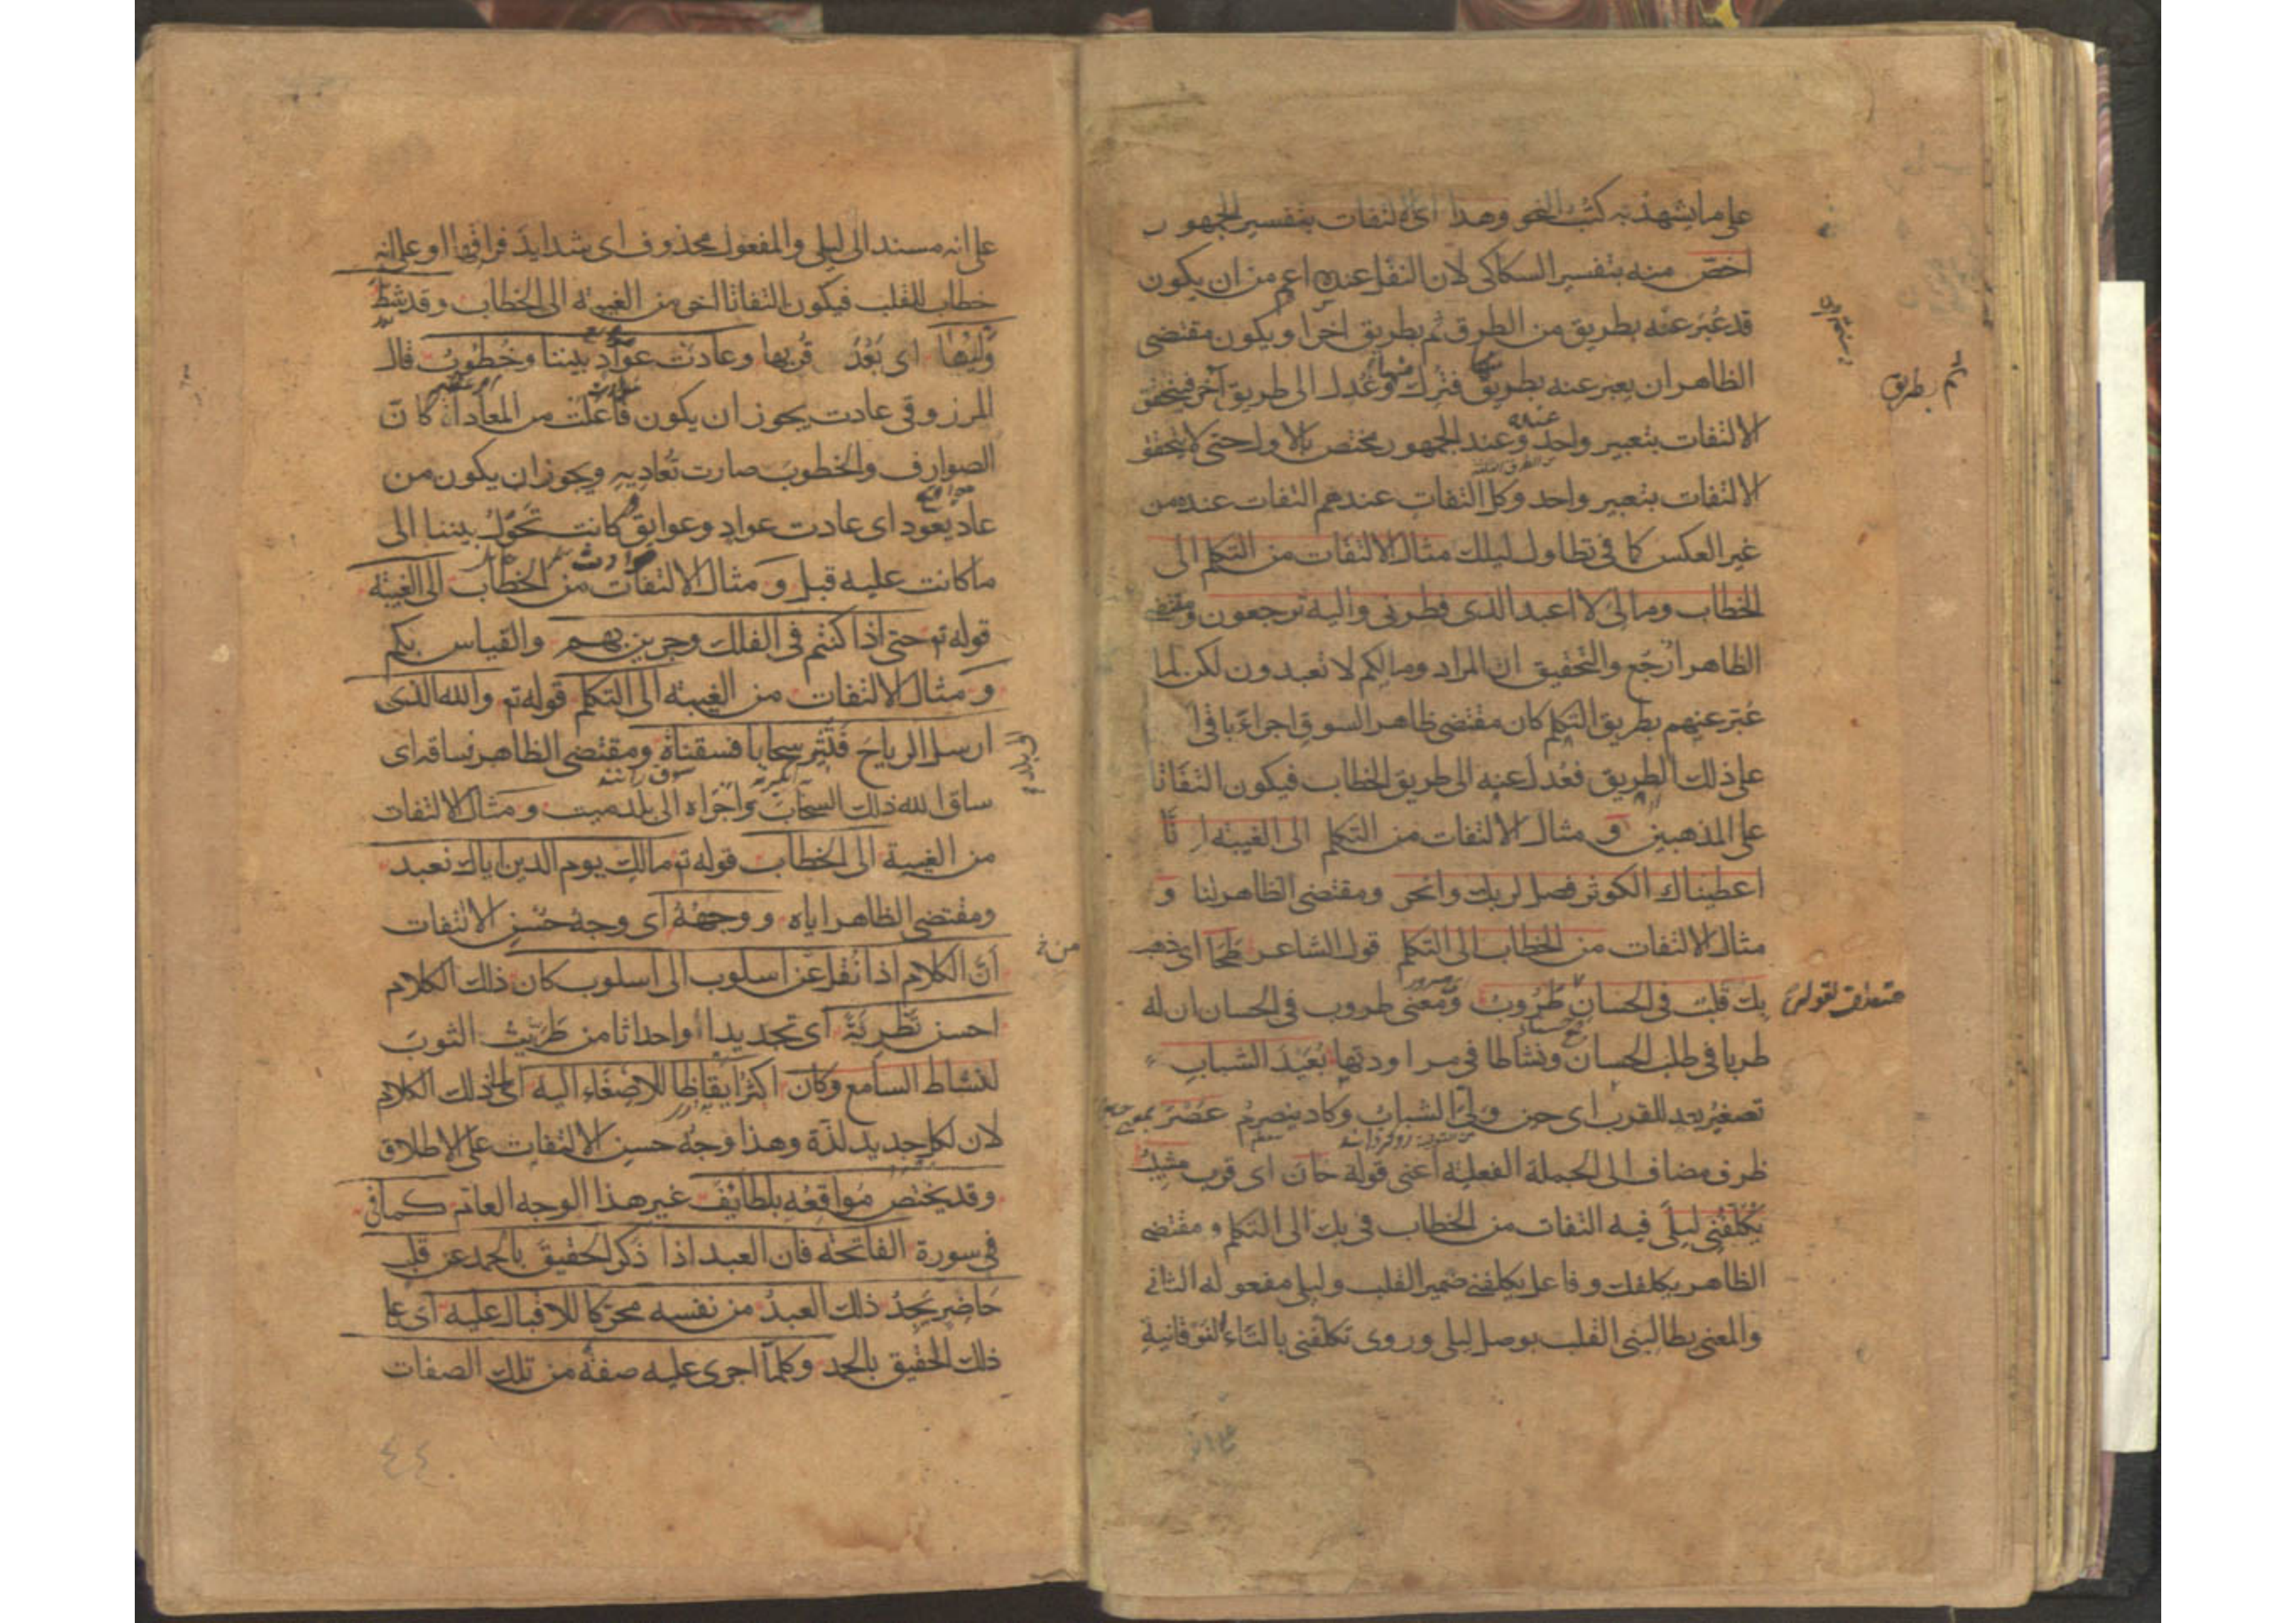 على ما يشهد به كتب النحو وهذا اى الالتفات بتفسير الجمهور
اخص منه بتفسير السكاكى لان النقل عنده اعم من ان يكون
قد عبر عنه بطريق من الطرق ثم بطريق اخر او يكون مقتضى
الظاهر ان يعبر عنه بطريق منها فترك وعدل الى طريق آخر فيتحقق
الالتفات بتعبير واحد وعند الجمهور مختص بالاول حتى لا يتحقق
الالتفات بتعبير واحد وكل التفات عندهم التفات عنده من
غير العكس كما فى تطاول ليلك مثال الالتفات من التكلم الى
الخطاب ومالى لا اعبد الذى فطرنى واليه ترجعون ومقتضى
الظاهر ارجع والتحقيق ان المراد ومالكم لا تعبدون لكن لما
عبر عنهم بطريق التكلم كان مقتضى ظاهر السوق اجراء باقى
على ذلك الطريق فعدل عنه الى طريق الخطاب فيكون التفاتا
على المذهبين و مثال الالتفات من التكلم الى الغيبة انا
اعطيناك الكوثر فصل لربك وانحر ومقتضى الظاهر لنا و
مثال الالتفات من الخطاب الى التكلم قول الشاعر طحا اى ذهب
بك قلب فى الحسان طروب ومعنى طروب فى الحسان ان له
طربا فى طلب الحسان ونشاطا فى مراودتها بعيد الشباب
تصغير بعد للقرب اى حين ولى الشباب وكاد ينصرم عصر
ظرف مضاف الى الجملة الفعلية اعنى قوله حان اى قرب مشيب
يكلفنى ليلى فيه التفات من الخطاب فى بك الى التكلم و مقتضى
الظاهر يكلفك وفاعل يكلفنى ضمير القلب وليلى مفعوله الثانى
والمعنى يطالبنى القلب بوصل ليلى وروى تكلفنى بالتاء الفوقانية
ثم بطريق
متعلق بقوله
على انه مسند الى ليلى والمفعول محذوف اى شدايد فراقها او على انه
خطاب للقلب فيكون التفاتا اخر من الغيبة الى الخطاب وقد شط
وليها اى بعد قربها وعادت عواد بيننا وخطوب قال
المرزوقى عادت يجوز ان يكون فاعلت من المعاداة كان
الصوارف والخطوب صارت تعاديه ويجوز ان يكون من
عاد يعود اى عادت عواد وعوايق كانت تحول بيننا الى
ما كانت عليه قبل و مثال الالتفات من الخطاب الى الغيبة
قوله تع حتى اذا كنتم فى الفلك وجرين بهم والقياس بكم
و مثال الالتفات من الغيبة الى التكلم قوله تع والله الذى
ارسل الرياح فتثير سحابا فسقناه ومقتضى الظاهر فساقه اى
ساق الله ذلك السحاب واجراه الى بلد ميت و مثال الالتفات
من الغيبة الى الخطاب قوله تع مالك يوم الدين اياك نعبد
ومقتضى الظاهر اياه و وجهه اى وجه حسن الالتفات
ان الكلام اذا نقل عن اسلوب الى اسلوب كان ذلك الكلام
احسن تطرية اى تجديدا واحداثا من طريت الثوب
لنشاط السامع وكان اكثر ايقاظا للاصغاء اليه اى الى ذلك الكلام
لان لكل جديد لذة وهذا وجه حسن الالتفات على الاطلاق
وقد يختص مواقعه بلطائف غير هذا الوجه العام كما فى
فى سورة الفاتحة فان العبد اذا ذكر الحقيق بالحمد عن قلب
حاضر يجد ذلك العبد من نفسه محركا للاقبال عليه اى على
ذلك الحقيق بالحمد وكلما اجرى عليه صفة من تلك الصفات
٤٤